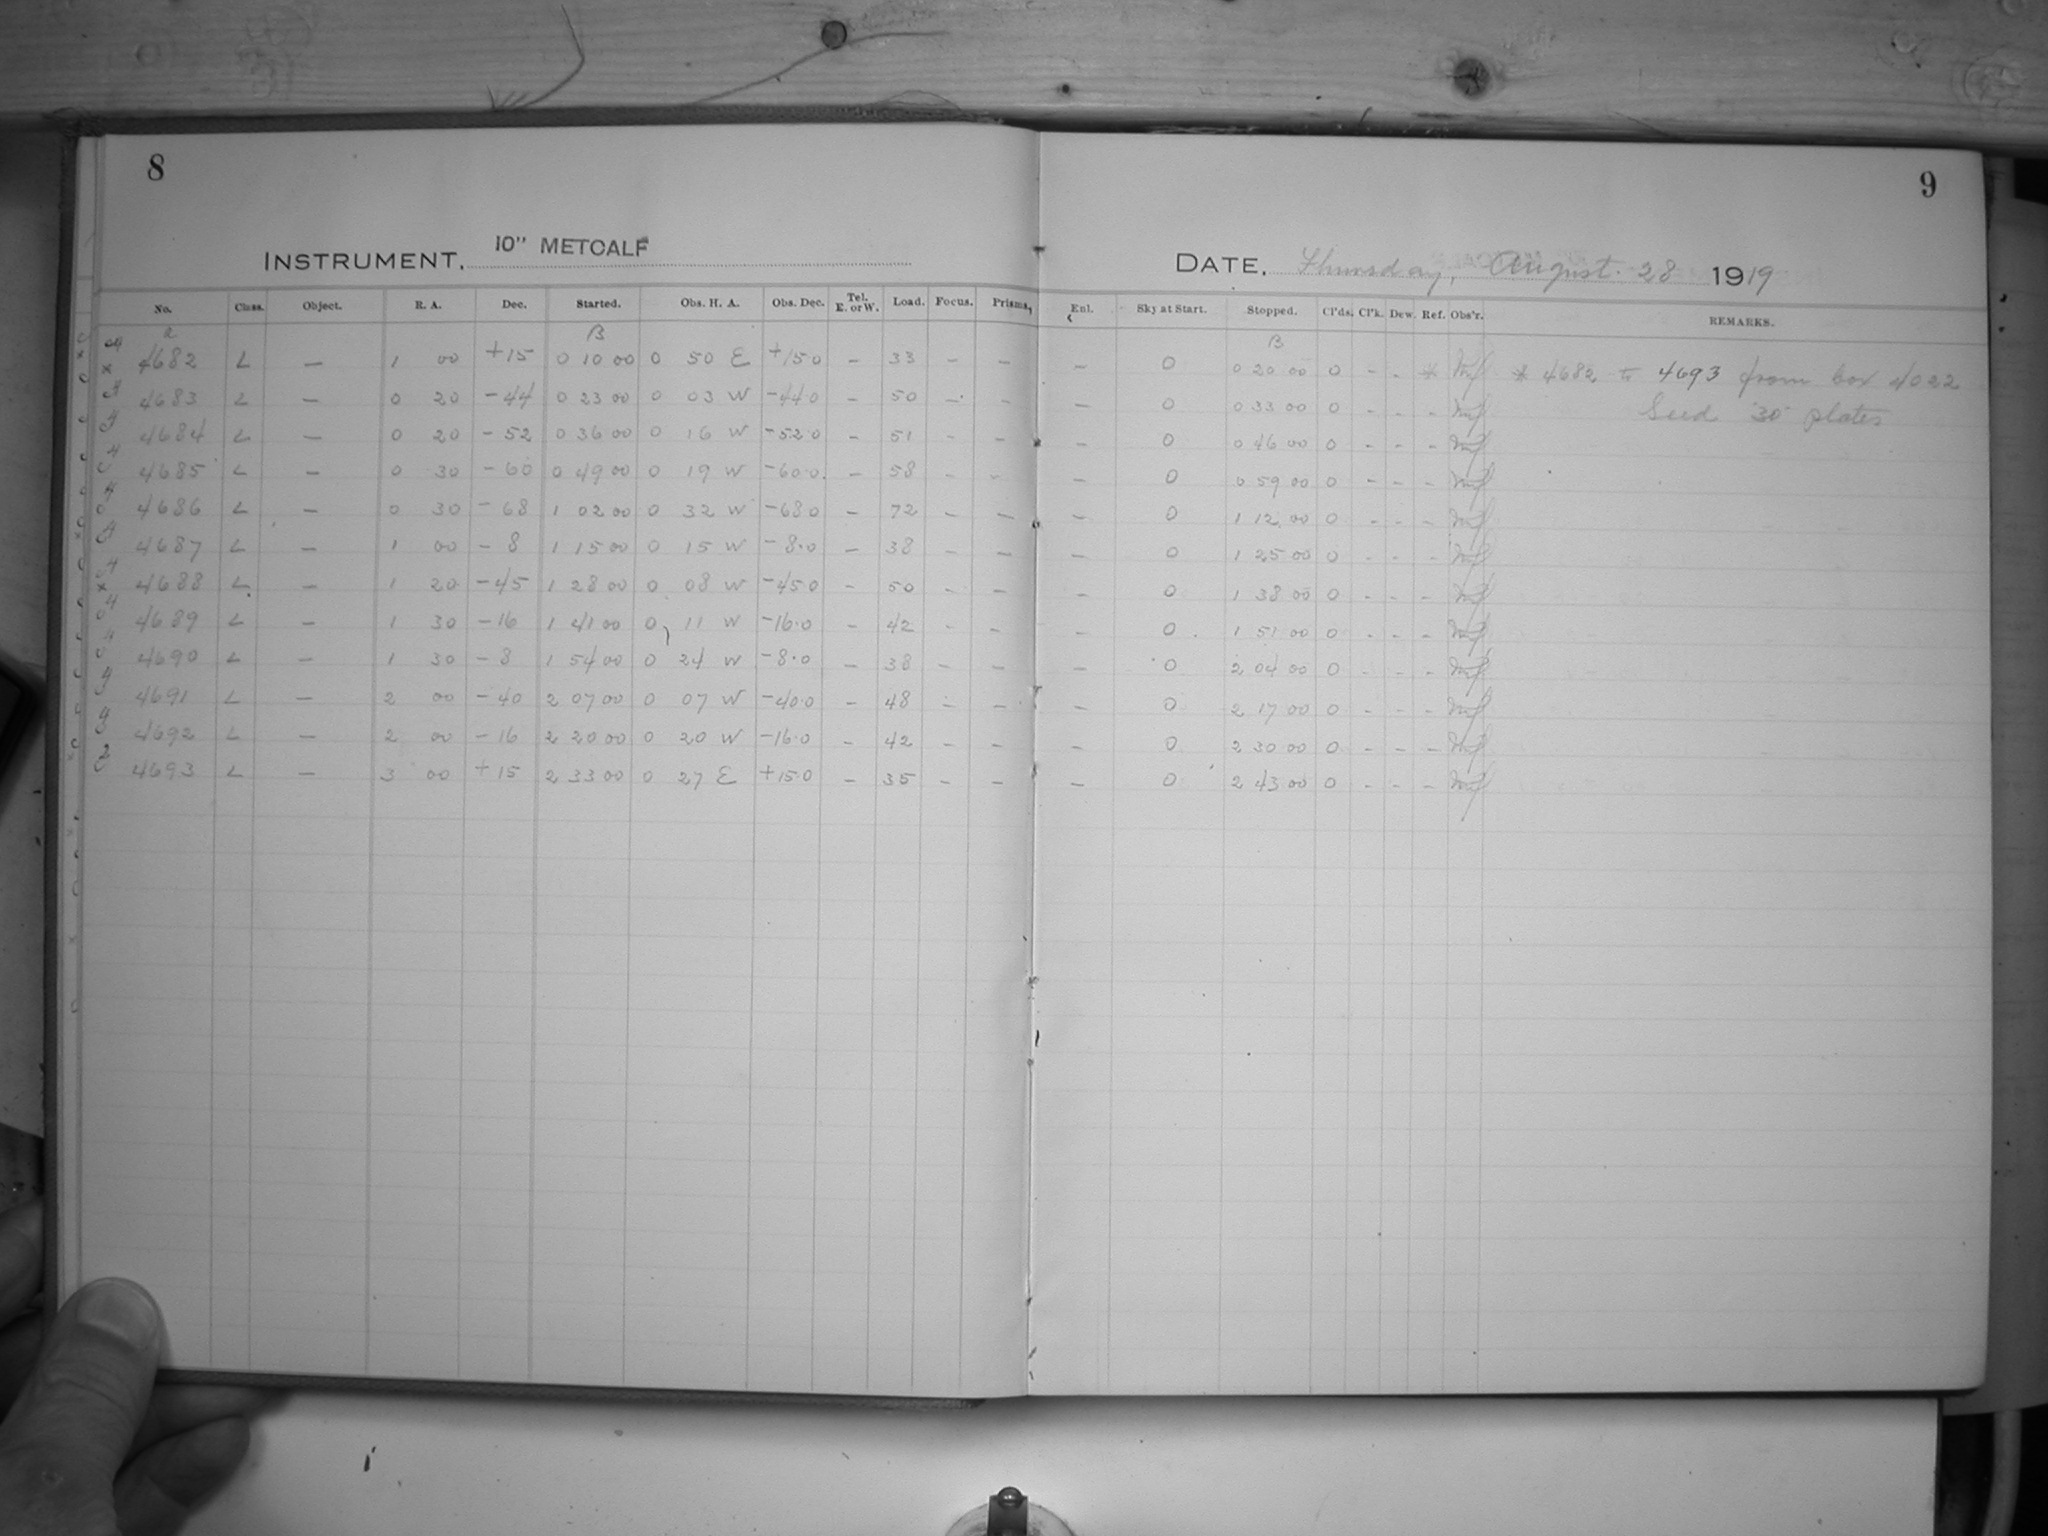 8
INSTRUMENT. 10" METCALF
No. Class. Object. R. A. Dec. Started. Obs. H. A. Obs. Dec. Tel. E. or W. Load. Focus. Prisms.
a B
4682 L — 1 00 +15 0 10 00 0 50 E +15.0 — 33 — —
4683 L — 0 20 -44 0 23 00 0 03 W -44.0 — 50 — —
4684 L — 0 20 -52 0 36 00 0 16 W -52.0 — 51 — —
4685 L — 0 30 -60 0 49 00 0 19 W -60.0 — 58 — —
4686 L — 0 30 -68 1 02 00 0 32 W -68.0 — 72 — —
4687 L — 1 00 -8 1 15 00 0 15 W -8.0 — 38 — —
4688 L — 1 20 -45 1 28 00 0 08 W -45.0 — 50 — —
4689 L — 1 30 -16 1 41 00 0 11 W -16.0 — 42 — —
4690 L — 1 30 -8 1 54 00 0 24 W -8.0 — 38 — —
4691 L — 2 00 -40 2 07 00 0 07 W -40.0 — 48 — —
4692 L — 2 00 -16 2 20 00 0 20 W -16.0 — 42 — —
4693 L — 3 00 +15 2 33 00 0 27 E +15.0 — 35 — —
9
DATE. Thursday, August. 28 1919
Enl. Sky at Start. Stopped. Cl'ds. Cl'k. Dew. Ref. Obs'r. REMARKS.
B
— 0 0 20 00 0 - - * * 4682 to 4693 from box 4022
— 0 0 33 00 0 - - - Seed 30 plates
— 0 0 46 00 0 - - -
— 0 0 59 00 0 - - -
— 0 1 12 00 0 - - -
— 0 1 25 00 0 - - -
— 0 1 38 00 0 - - -
— 0 1 51 00 0 - - -
— 0 2 04 00 0 - - -
— 0 2 17 00 0 - - -
— 0 2 30 00 0 - - -
— 0 2 43 00 0 - - -